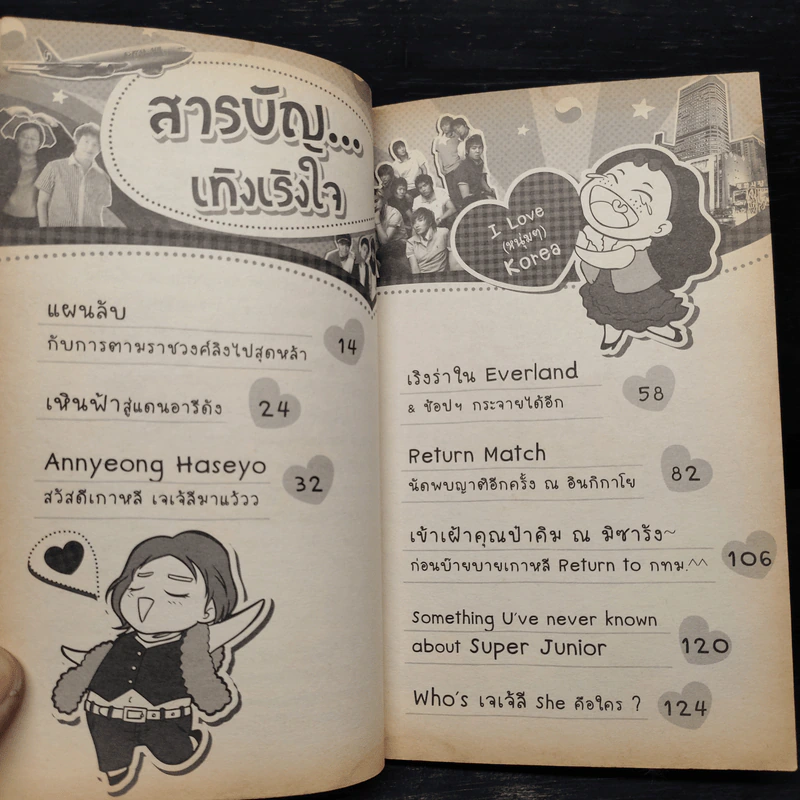 สารบัญ...
เทิงเริงใจ
แผนลับ
กับการตามราชวงศ์ลิงไปสุดหล้า 14
เหินฟ้าสู่แดนอารีดัง 24
Annyeong Haseyo
สวัสดีเกาหลี เจเจ้ลีมาแว้วว 32
I Love
(หนุ่มๆ)
Korea
เริงร่าใน Everland
& ช้อปฯ กระจายได้อีก 58
Return Match
นัดพบญาติอีกครั้ง ณ อินกิกาโย 82
เข้าเฝ้าคุณป๋าคิม ณ มิซารัง~
ก่อนบ๊ายบายเกาหลี Return to กทม.^^ 106
Something U've never known
about Super Junior 120
Who's เจเจ้ลี She คือใคร ? 124